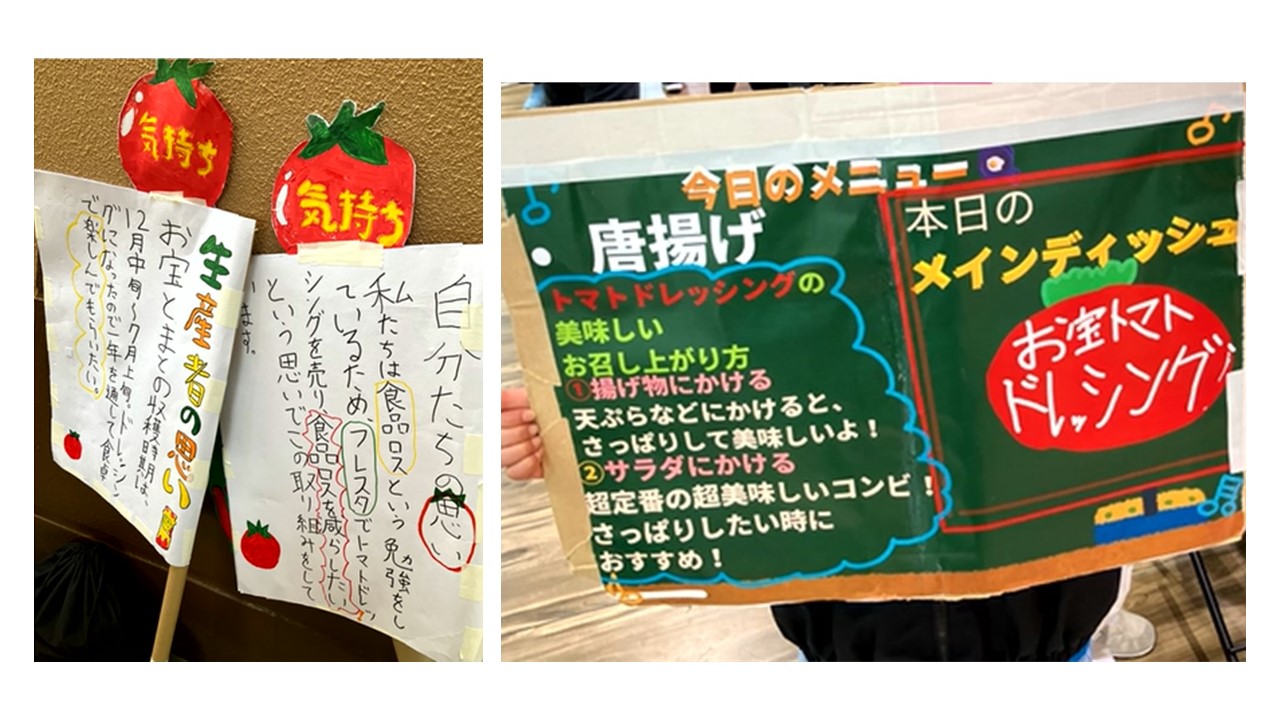 気持ち
生産者の思い
お宝とまとの収穫時期は、
12月中旬〜7月上旬。ドレッシン
グになったので一年を通して食卓
で楽しんでもらいたい。
気持ち
自分たちの思い
私たちは食品ロスという勉強をし
ているため、フレスタでトマトドレッ
シングを売り食品ロスを減らしたい
という思いでこの取り組みをして
います。
今日のメニュー
・唐揚げ
トマトドレッシングの
美味しい
お召し上がり方
①揚げ物にかける
天ぷらなどにかけると、
さっぱりして美味しいよ！
②サラダにかける
超定番の超美味しいコンビ！
さっぱりしたい時に
おすすめ！
本日の
メインディッシュ
お宝トマト
ドレッシング